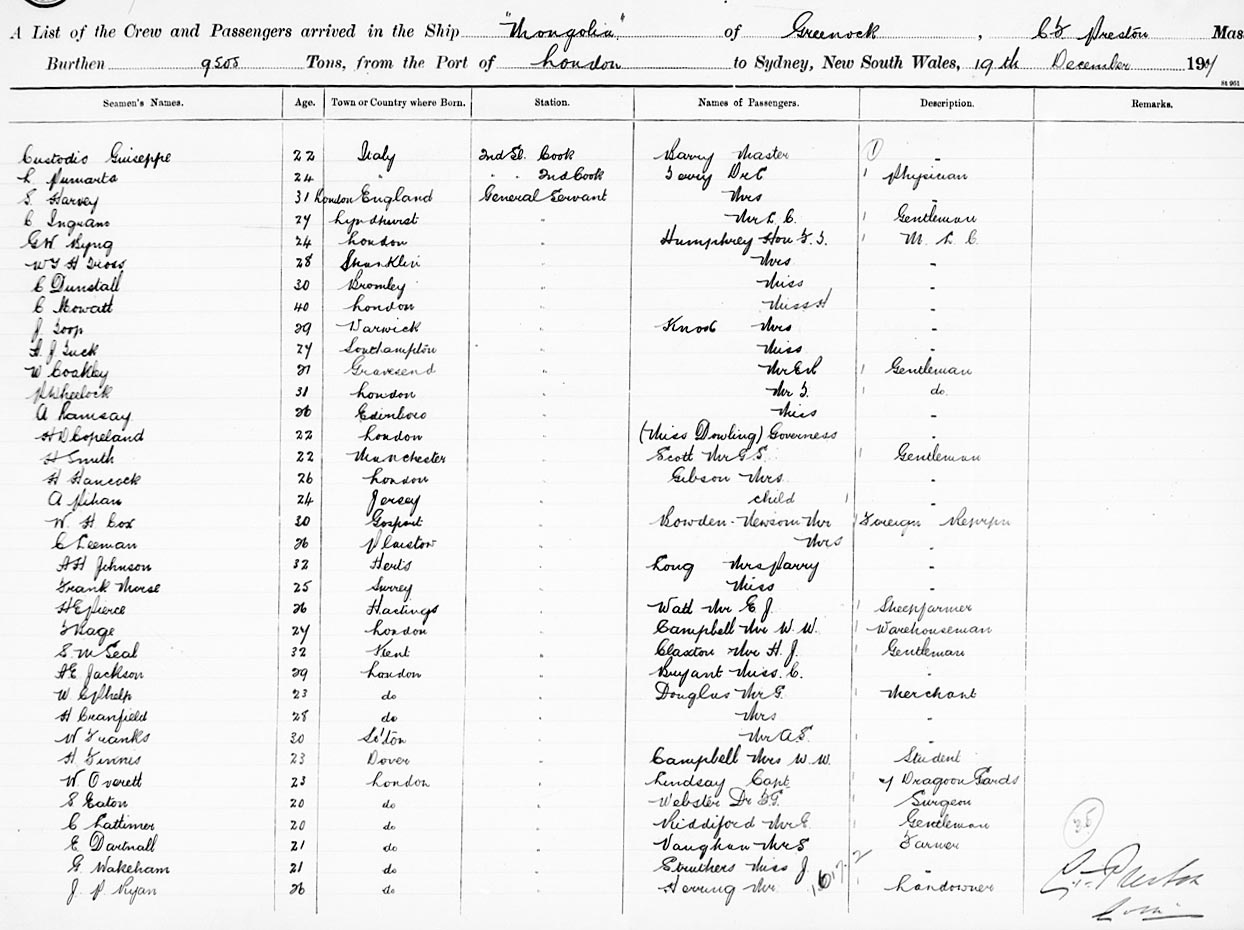 A List of the Crew and Passengers arrived in the Ship "Mongolia" of Greenock, C F Preston Mas
Burthen 9505 Tons, from the Port of London to Sydney, New South Wales, 19th December 190
St 961
Seamen's Names. Age. Town or Country where Born. Station. Names of Passengers. Description. Remarks.
Custodio Guiseppe 22 Italy 2nd Cook Barry Master 1 "
L 24 " " " 2nd Cook Dr C 1 Physician
S. Harvey 31 London England General Servant Mrs "
C Ingram 27 Lyndhurst " Mr L. C. 1 Gentleman
G W Byng 24 London " Humphrey Hon F. F. 1 M. L. C.
28 Shanklin " Mrs "
C Dunstall 30 Bromley " Miss "
C Howatt 40 London " Miss H "
J Toop 29 Warwick " Knox Mrs "
J Tuck 27 Southampton " Miss "
W Coakley 21 Gravesend " Mr E R 1 Gentleman
Wheelock 31 London " Mr F. 1 do.
A Ramsay 26 Edinboro " Miss "
H D Copeland 22 London " (Miss Dowling) Governess "
H Smith 22 Manchester " Scott Mr G S. Gentleman
H Hancock 26 London " Gibson Mrs "
A 24 Jersey " child 1 "
W. H Cox 30 Gosport " Bowden-Newsom Mr 1 Foreign
C Leeman 26 Plaistow " Mrs "
A H Johnson 32 Herts " Long Mrs Parry "
Frank Morse 25 Surrey " Miss "
H E Pierce 26 Hastings " Watt Mr E J. 1 Sheepfarmer
F Page 27 London " Campbell Mr W. W. 1 Warehouseman
S. M Seal 32 Kent " Claxton Mr H. J. 1 Gentleman
A E. Jackson 29 London " Bryant Miss. C. "
W G Phelp 23 do " Douglas Mr G. 1 Merchant
H Cranfield 28 do " Mrs "
W Franks 30 So'ton " Mr A S. 1 "
H Finnis 23 Dover " Campbell Mrs W. W. Student
W. Overett 23 London " Lindsay Capt. 1 of Dragoon Gards
S Eaton 20 do " Webster Dr F G. 1 Surgeon
C Lattimer 20 do " Riddiford Mr E. 1 Gentleman
E Dartnall 21 do " Vaughan Mr S 1 Farmer
G. Wakeham 21 do " Struthers Miss J. "
J. P. Ryan 26 do " Herring Mr. 1 Landowner
35
C. F. Preston